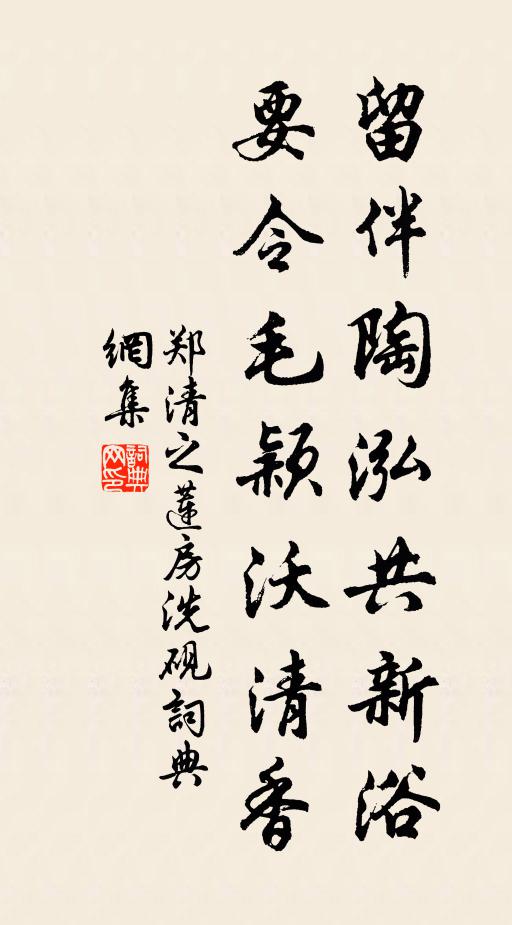 留伴陶泓共新浴
要令毛颖沃清香
郑清之莲房洗砚詞典
網集
詞典
网印